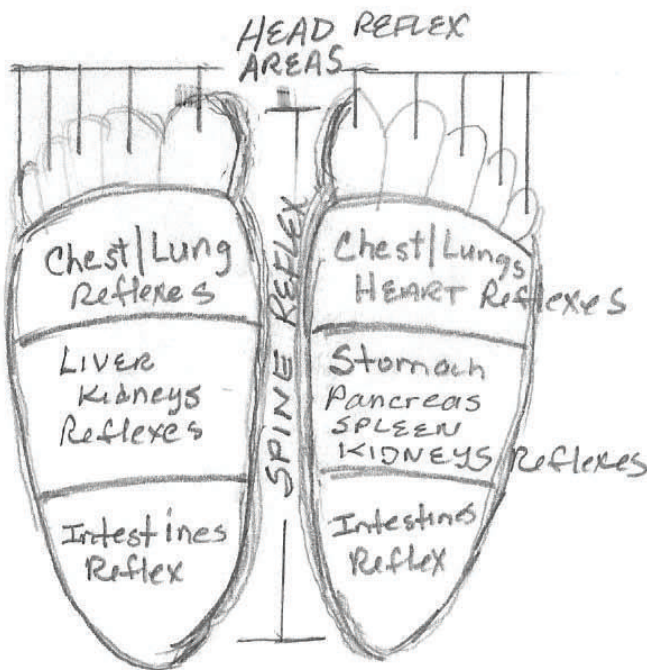 HEAD REFLEX
AREAS
Chest/Lung
Reflexes
LIVER
Kidneys
Reflexes
Intestines
Reflex
SPINE REFLEX
Chest/Lungs
HEART Reflexes
Stomach
Pancreas
SPLEEN
KIDNEYS Reflexes
Intestines
Reflex